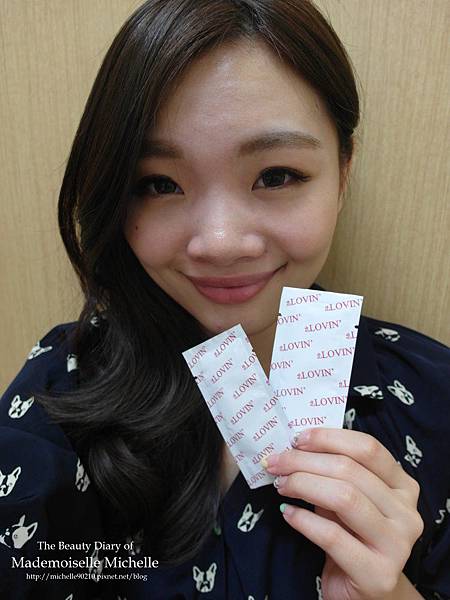 LOVIN'
LOVIN'
LOVIN'
LOVIN'
LOVIN'
LOVIN'
LOVIN'
LOVIN'
LOVIN'
LOVIN'
LOVIN'
LOVIN'
The Beauty Diary of
Mademoiselle Michelle
http://michelle90210.pixnet.net/blog